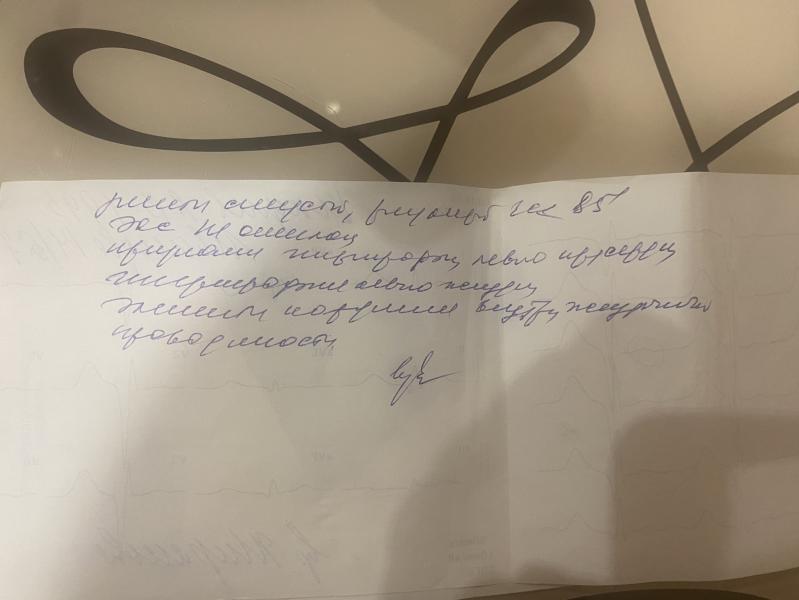 ритм синусовый, регулярный чсс 85'
ЭОС не отклонена
признаки гипертрофии левого предсердия
гипертрофия левого желудочка
нарушения внутрижелудочковой
проводимости